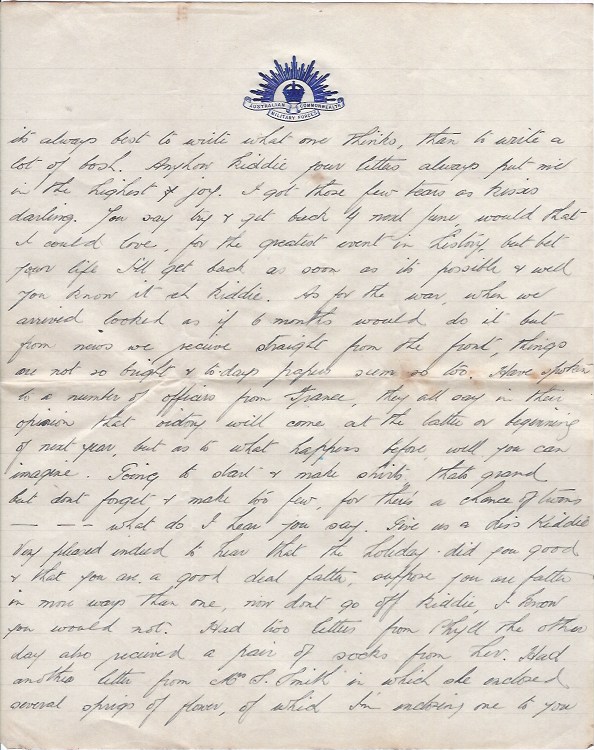 AUSTRALIAN COMMONWEALTH
MILITARY FORCES
its always best to write what one thinks, than to write a
lot of bosh. Anyhow Kiddie your letters always put me
in the highest of joy. I got those few tears as kisses
darling. You say try & get back by next June, would that
I could love, for the greatest event in History, but bet
your life I'll get back as soon as its possible & well
you know it eh Kiddie. As for the war, when we
arrived looked as if 6 months would do it but
from news we receive straight from the front, things
are not so bright & to-days papers seem so too. Have spoken
to a number of officers from France, they all say in their
opinion that victory will come at the latter or beginning
of next year, but as to what happens before, well you can
imagine. Going to start & make shirts, thats grand
but dont forget & make too few, for there's a chance of twins
— — — what do I hear you say. Give us a kiss Kiddie
Very pleased indeed to hear that the holiday did you good
& that you are a good deal fatter, suppose you are fatter
in more ways than one, now dont go off Kiddie, I know
you would not. Had two letters from Phyll the other
day also recieved a pair of socks from her. Had
another letter from Mrs S. Smith in which she enclosed
several sprigs of flower, of which I'm enclosing one to you